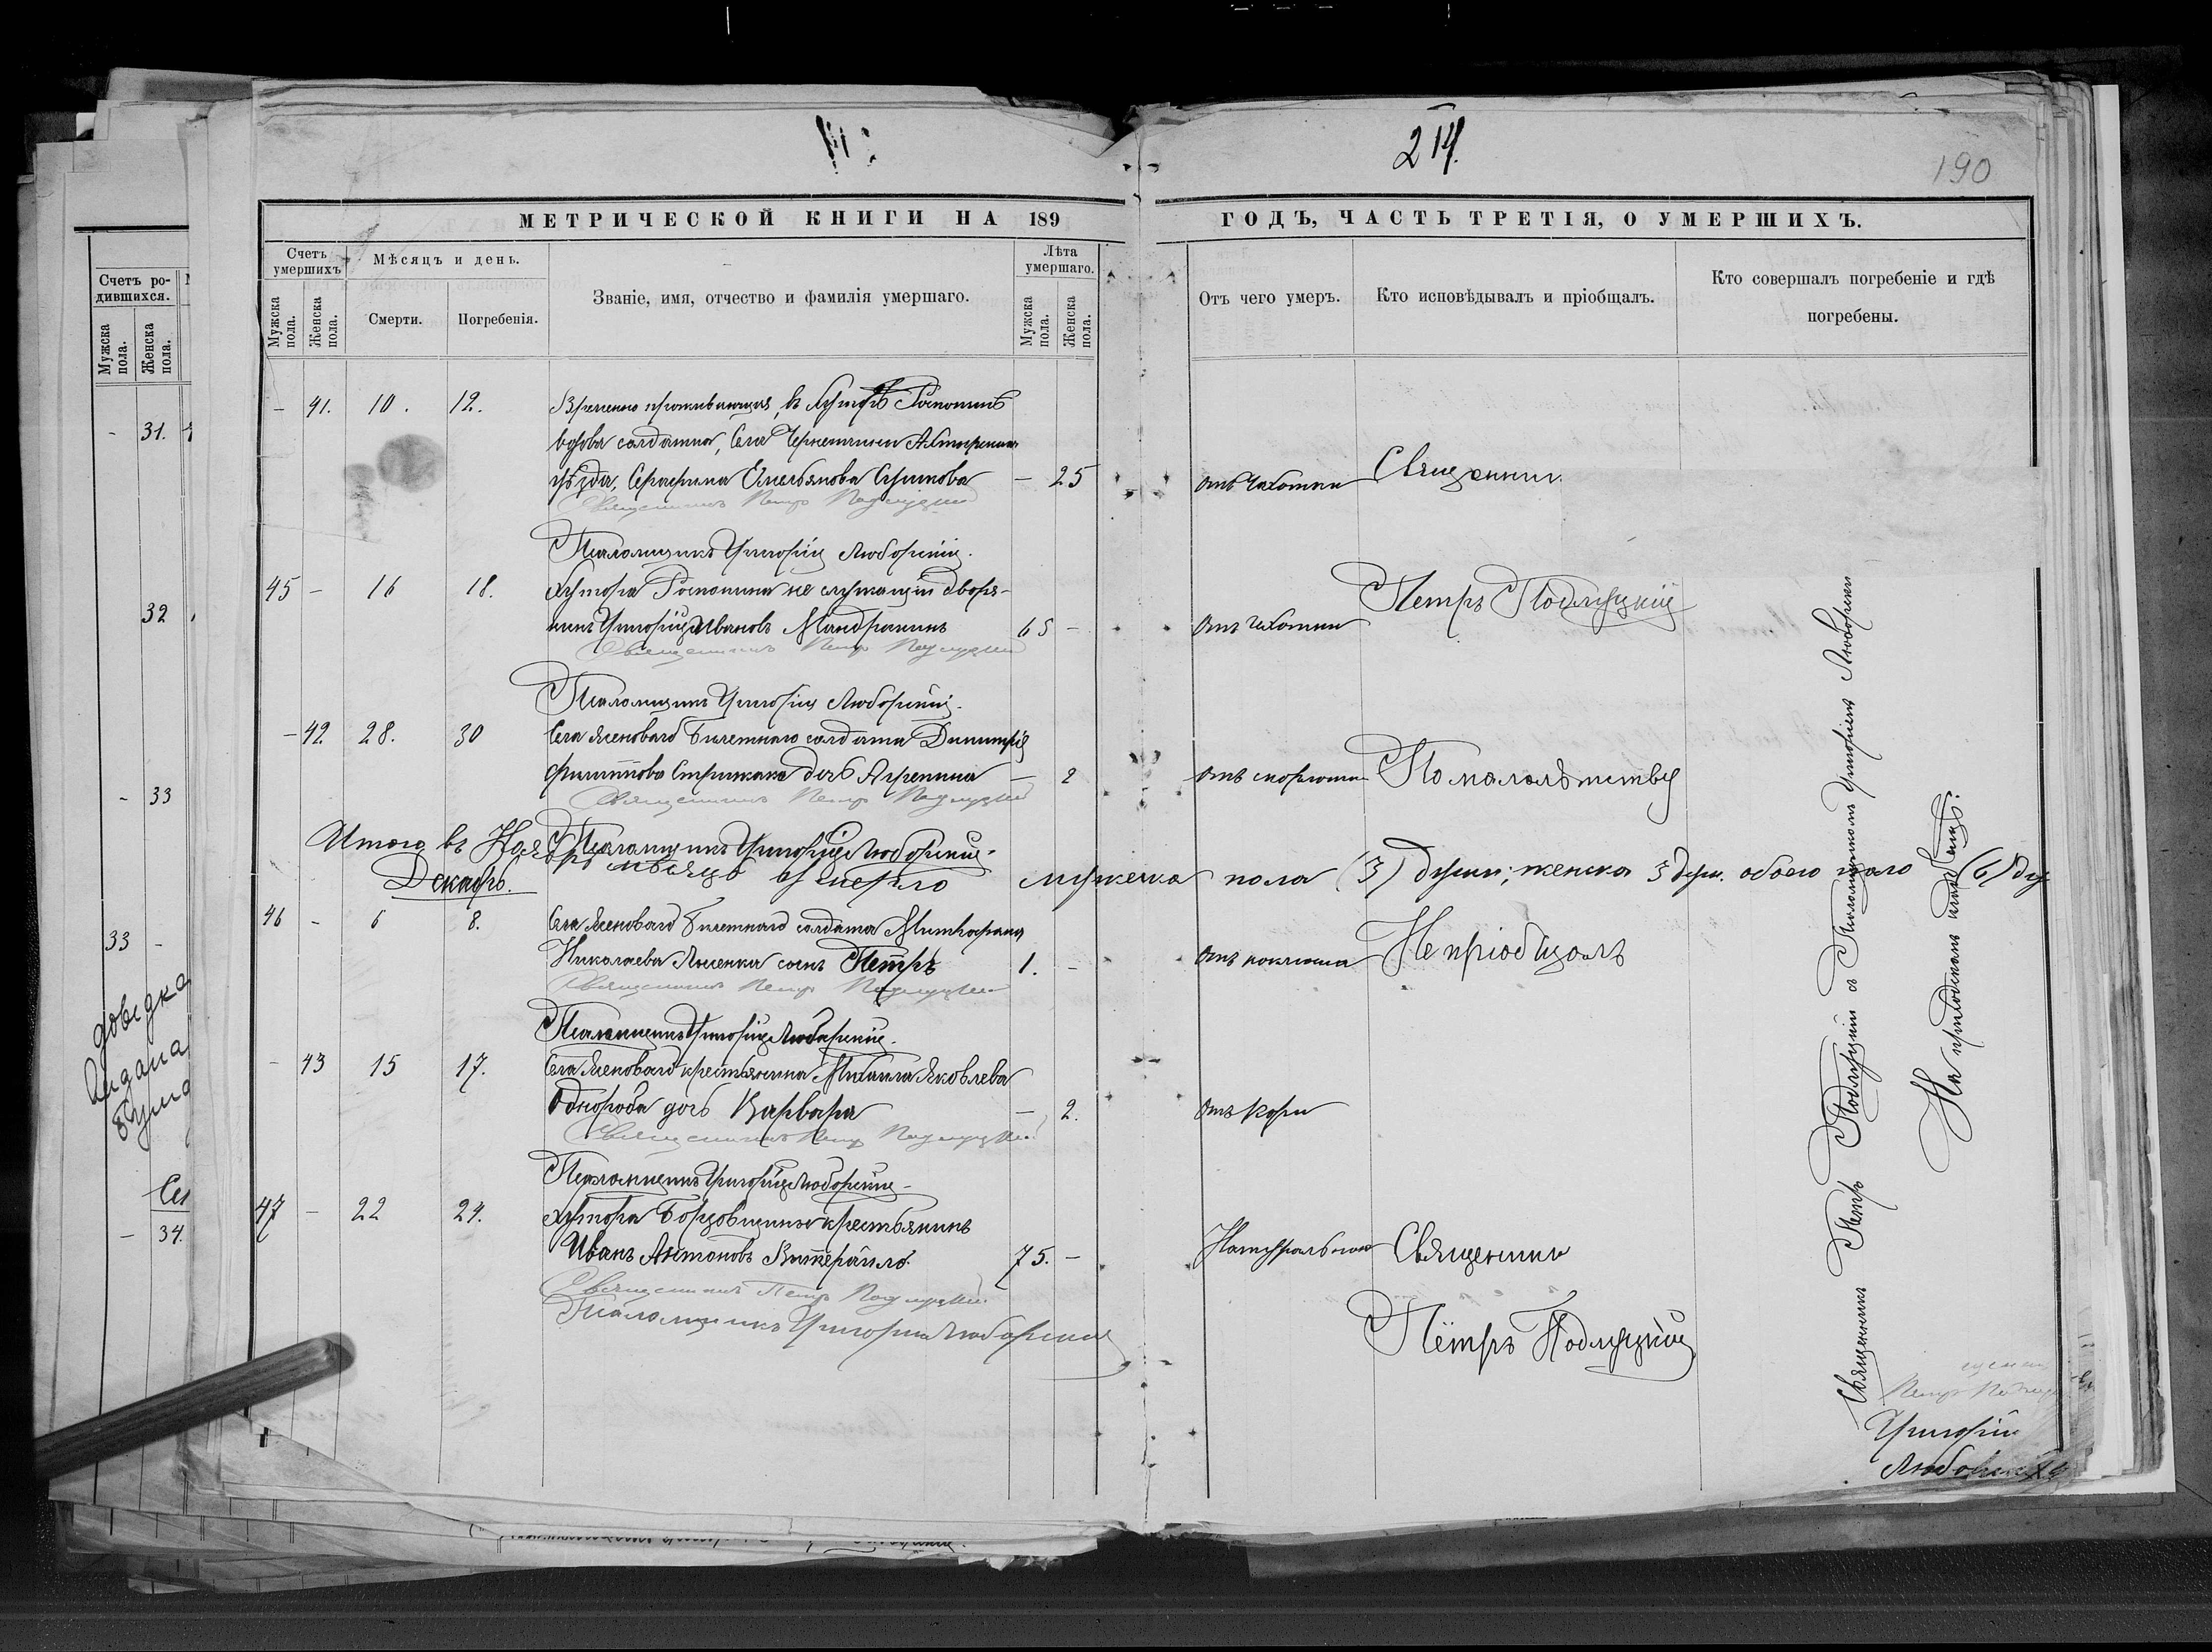 214.
190
МЕТРИЧЕСКОЙ КНИГИ НА 189
ГОДЪ, ЧАСТЬ ТРЕТІЯ, О УМЕРШИХЪ.
Счетъ умершихъ
Мѣсяцъ и день.
Званіе, имя, отчество и фамилія умершаго.
Лѣта умершаго.
Мужска пола.
Женска пола.
Смерти.
Погребенія.
Мужска пола.
Женска пола.
Отъ чего умеръ.
Кто исповѣдывалъ и пріобщалъ.
Кто совершалъ погребеніе и гдѣ
погребены.
- 41. 10. 12. Временно проживающая, въ хуторѣ
вдова солдатка, села Ахтырскаго
уѣзда, Серафима Емельянова - 25 отъ чахотки Священникъ
Священникъ Петръ Подлуцкій
Псаломщикъ Григорій Любарскій.
45 - 16 18. хутора не служащій дворя-
нинъ Григорій Ивановъ Мандрыкинъ 65 - отъ чахотки Петръ Подлуцкій
Священникъ Петръ Подлуцкій
Псаломщикъ Григорій Любарскій.
- 42. 28. 30 Села Ясеноваго Билетнаго солдата Димитрія
Филиппова Стрижака дочь Агрепина - 2 отъ По малолѣтству
Священникъ Петръ Подлуцкій
Псаломщикъ Григорій Любарскій.
Итого въ Ноябрѣ мѣсяцѣ умерло мужеска пола (3) души; женска 3 душ. обоего пола (6) душ
Декабрь.
46 - 6 8. Села Ясеноваго Билетнаго солдата Митрофана
Николаева Лысенка сынъ Петръ 1. - отъ коклюша Не пріобщалъ
Священникъ Петръ Подлуцкій
Псаломщикъ Григорій Любарскій.
- 43 15 17. Села Ясеноваго крестьянина Михаила Яковлева
Однорога дочь Варвара - 2. отъ кори
Священникъ Петръ Подлуцкій
Псаломщикъ Григорій Любарскій
47 - 22 24. хутора Борцовщины крестьянинъ
Иванъ Антоновъ 75. - Натурально Священникъ
Священникъ Петръ Подлуцкій
Псаломщикъ Григорій Любарскій
Петръ Подлуцкій
Священникъ Петръ Подлуцкій съ Псаломщикомъ Григоріемъ Любарскимъ
На приходскомъ кладбищѣ.
Григорій
Любарскій
Счетъ ро-
дившихся.
Мужска пола.
Женска пола.
- 31.
32
- 33
33 -
довідка
видана
- 34.